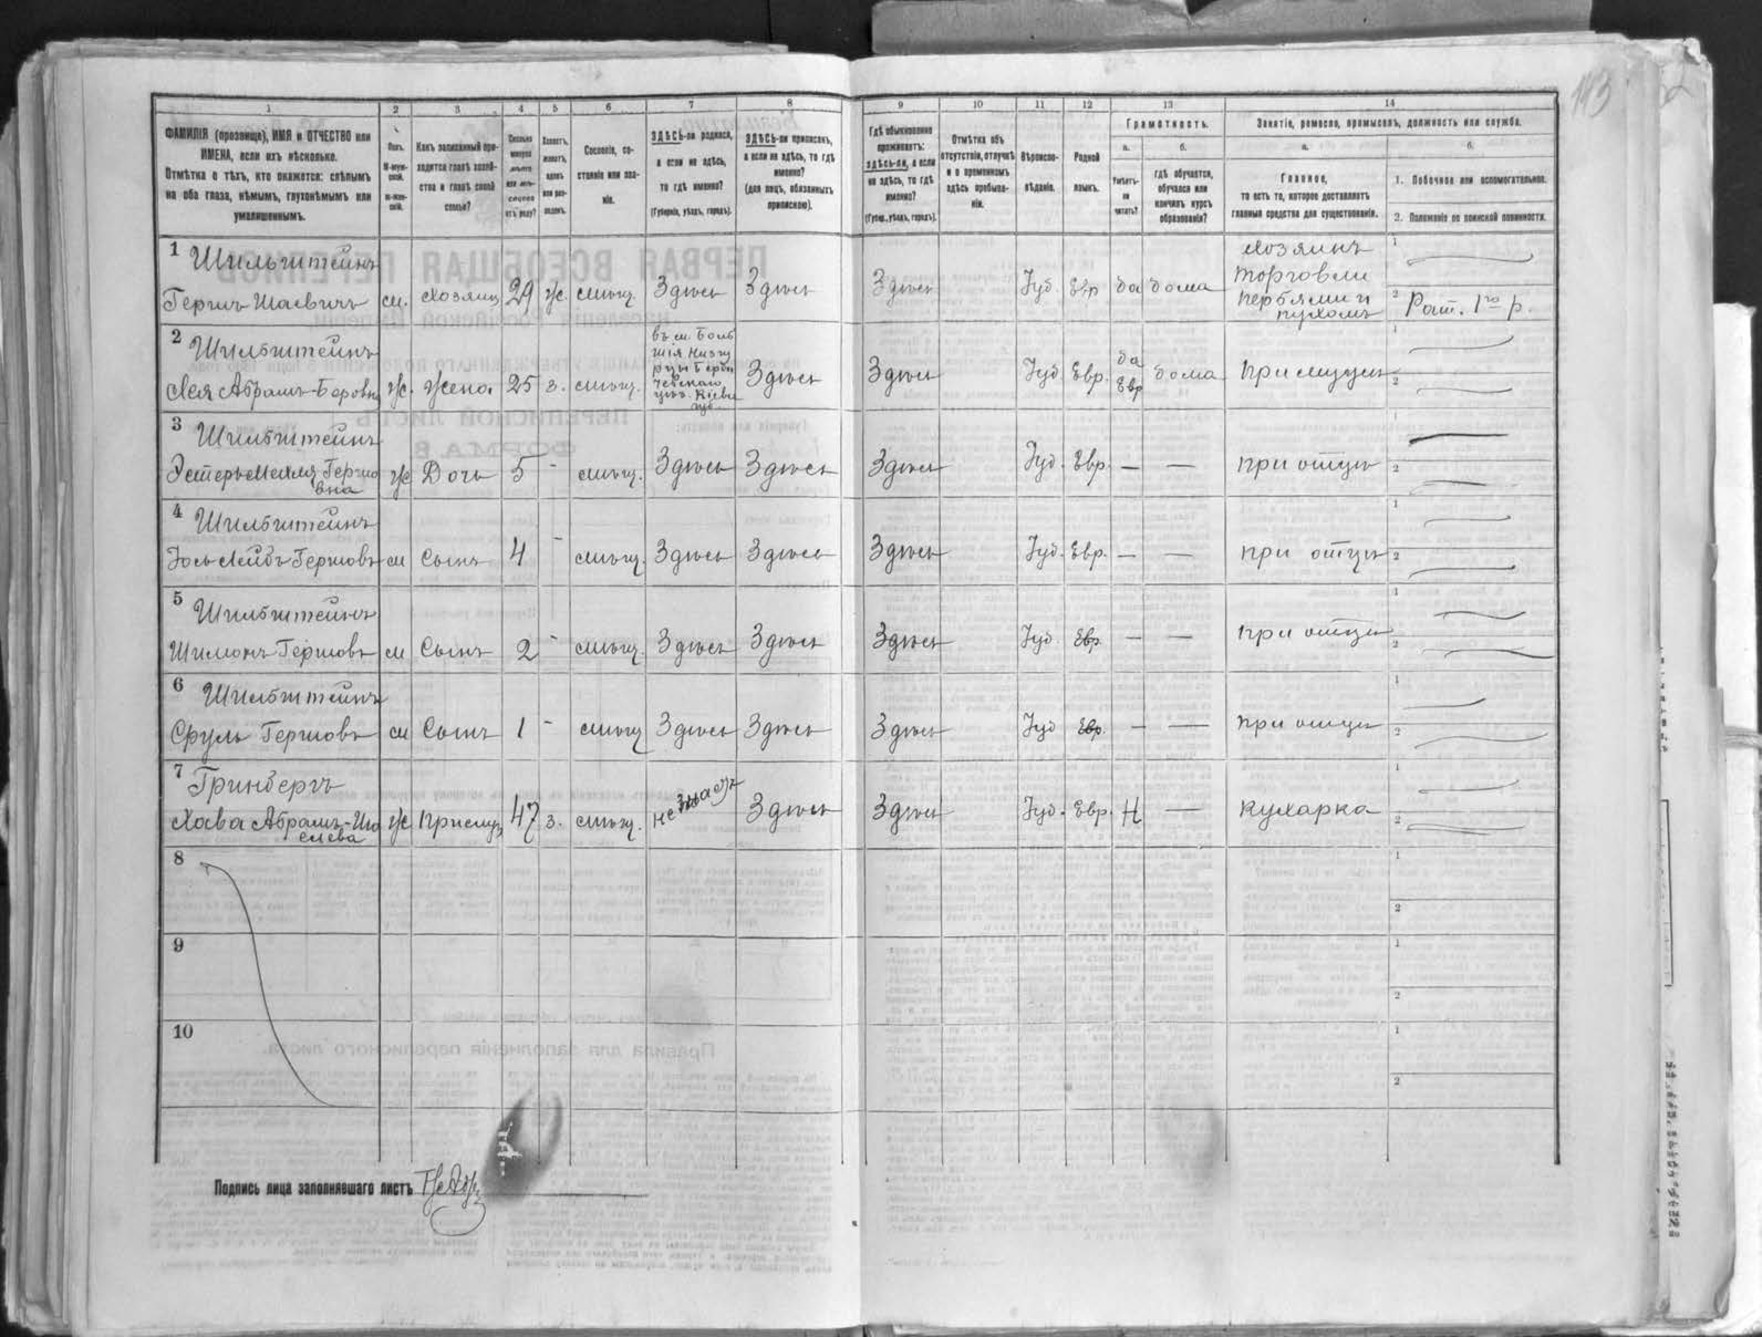 113
1 2 3 4 5 6 7 8 9 10 11 12 13 14
ФАМИЛІЯ (прозвище), ИМЯ и ОТЧЕСТВО или ИМЕНА, если ихъ нѣсколько.
Отмѣтка о тѣхъ, кто окажется: слѣпымъ на оба глаза, нѣмымъ, глухонѣмымъ или умалишеннымъ.
Полъ.
М-муж-
ской.
Ж-жен-
скій.
Какъ записанный при-
ходится главѣ хозяй-
ства и главѣ своей
семьи?
Сколько
минуло
лѣтъ
или мѣ-
сяцевъ
отъ роду?
Холостъ,
женатъ,
вдовъ
или раз-
веденъ.
Сословіе, со-
стояніе или зва-
ніе.
ЗДѢСЬ-ли родился,
а если не здѣсь,
то гдѣ именно?
(Губернія, уѣздъ, городъ).
ЗДѢСЬ-ли приписанъ,
а если не здѣсь, то гдѣ
именно?
(для лицъ, обязанныхъ
припискою).
Гдѣ обыкновенно
проживаетъ:
здѣсь-ли, а если
не здѣсь, то гдѣ
именно?
(Губерн., уѣздъ, городъ).
Отмѣтка объ
отсутствіи, отлучкѣ
и о временномъ
здѣсь пребыва-
ніи.
Вѣроиспо-
вѣданіе.
Родной
языкъ.
Грамотность.
а. б.
Умѣетъ-
ли
читать?
гдѣ обучается,
обучался или
кончилъ курсъ
образованія?
Занятіе, ремесло, промыселъ, должность или служба.
а. б.
Главное,
то есть то, которое доставляетъ
главныя средства для существованія.
1. Побочное или вспомогательное.
2. Положеніе по воинской повинности.
1 Шильштейнъ
Гершъ Шаевичъ м. Хозяинъ 29 ж. мѣщ. Здѣсь Здѣсь Здѣсь Іуд. Евр да дома Хозяинъ
торговли
перьями и
пухомъ
1
2 Рат. 1го р.
2 Шильштейнъ
Лея Абрамъ-Беровна ж. Жена 25 з. мѣщ. Здѣсь Здѣсь Іуд Евр. да
Евр дома При мужѣ
1
2
3 Шильштейнъ
Гершо
вна ж Дочь 5 - мѣщ. Здѣсь Здѣсь Здѣсь Іуд. Евр. — — при отцѣ
1
2
4 Шильштейнъ
Гершовъ м Сынъ 4 - мѣщ. Здѣсь Здѣсь Здѣсь Іуд. Евр. — — при отцѣ
1
2
5 Шильштейнъ
Шимонъ Гершовъ м Сынъ 2 - мѣщ. Здѣсь Здѣсь Здѣсь Іуд. Евр. — — при отцѣ
1
2
6 Шильштейнъ
Сруль Гершовъ м Сынъ 1 - мѣщ Здѣсь Здѣсь Здѣсь Іуд Евр. — — при отцѣ
1
2
7 Гринбергъ
Хава ж Прислуг 47 з. мѣщ. не знаетъ Здѣсь Здѣсь Іуд. Евр. Н — Кухарка
1
2
8
1
2
9
1
2
10
1
2
Подпись лица заполнявшаго листъ